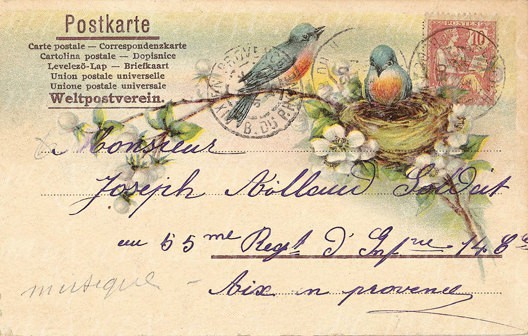 Postkarte
Carte postale — Correspondenzkarte
Cartolina postale — Dopisnice
Levelező-Lap — Briefkaart
Union postale universelle
Unione postale universale
Weltpostverein.
POSTES
10
B. DU RH
Monsieur
Joseph Nolland Soldat
au 55me Regt d'Infrie 14 8e
Aix en provence
musique